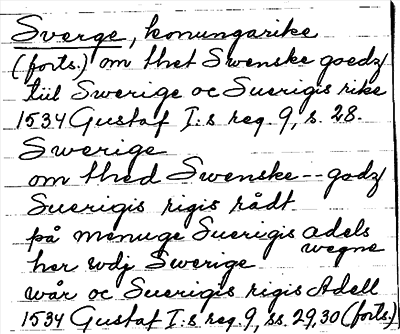 Sverge, konungarike
(forts.) om thet Swenske goedz
tiil Swerige oc Suerigis rike
1534 Gustaf I:s reg. 9, s. 28.
Swerige
om thed Swenske -- godz
Suerigis rigis rådt
på menuge Suerigis adels
wegne
her wdj Swerige
wår oc Suerigis rigis Adell
1534 Gustaf I:s reg. 9, ss. 29, 30 (forts.)